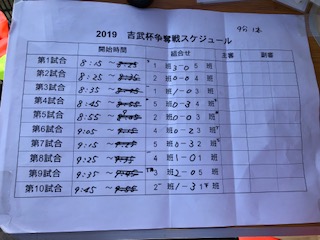 2019 吉武杯争奪戦スケジュール
開始時間 組合せ 主審 副審
第1試合 8:15 ~ 1 班 3-0 5 班
第2試合 8:25 ~ 8:35 2 班 0-0 4 班
第3試合 8:35 ~ 8:45 1 班 1-0 3 班
第4試合 8:45 ~ 8:55 5 班 0-3 4 班
第5試合 8:55 ~ 2 班 0-0 3 班
第6試合 9:05 ~ 4 班 0-2 3 班
第7試合 9:15 ~ 5 班 0-3 2 班
第8試合 9:25 ~ 4 班 1-0 1 班
第9試合 9:35 ~ 3 班 2-0 5 班
第10試合 9:45 ~ 2 班 1-3 1 班